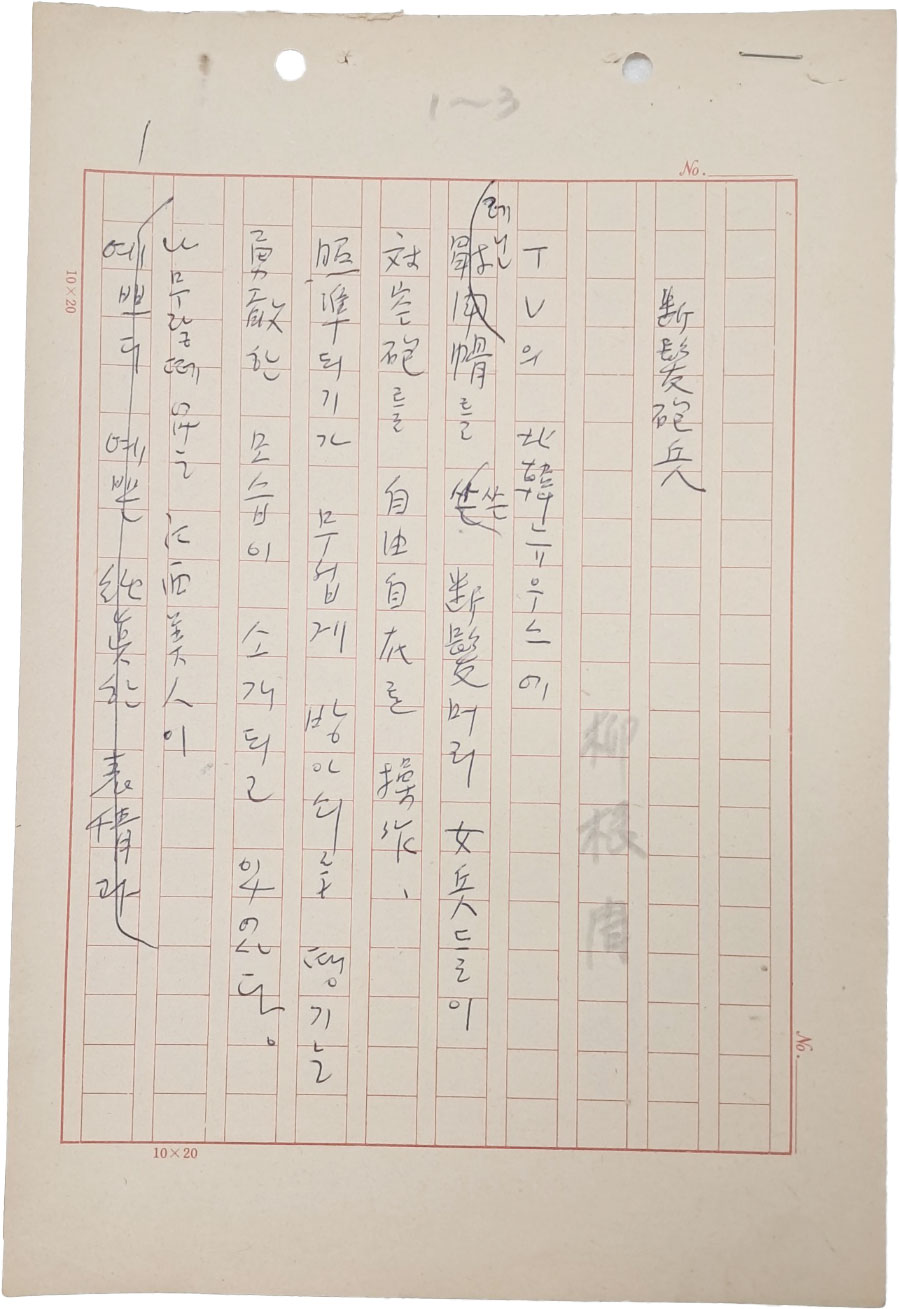 1~3
1
No.
断髮砲兵
柳根周
TV의 北韓뉴우스에
레닌
帽를 쓴 断髮머리 女兵들이
対空砲를 自由自在로 操作、
照準되기가 무섭게 방아쇠를 땡기는
勇敢한 모습이 소개되고 있었다。
나무랄데 없는 江西美人이
예쁘디 예쁜 純眞한 表情과
10×20
10×20
No.